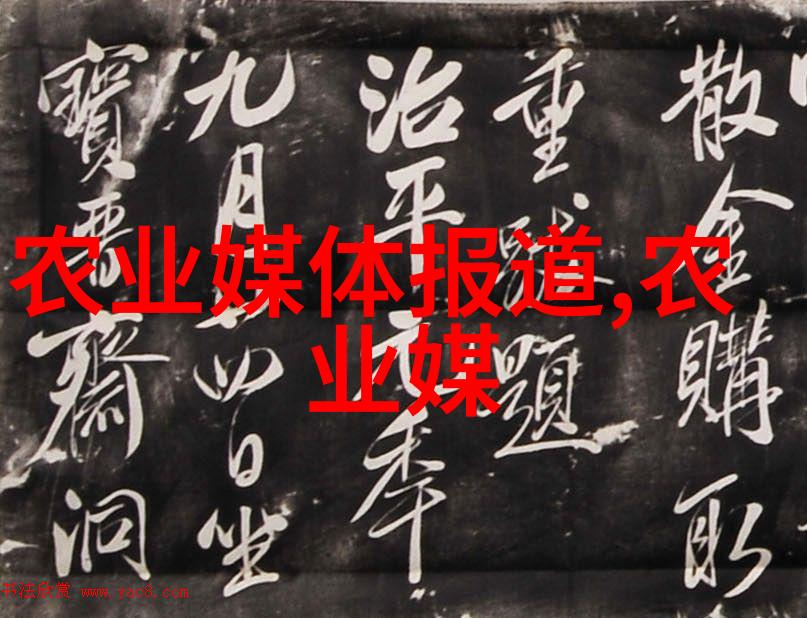 农业媒体报道,农
业媒
散金購取
重題
治平元年
九月廿四日坐
寶晉齋洞
书法欣赏 www.yac8.com